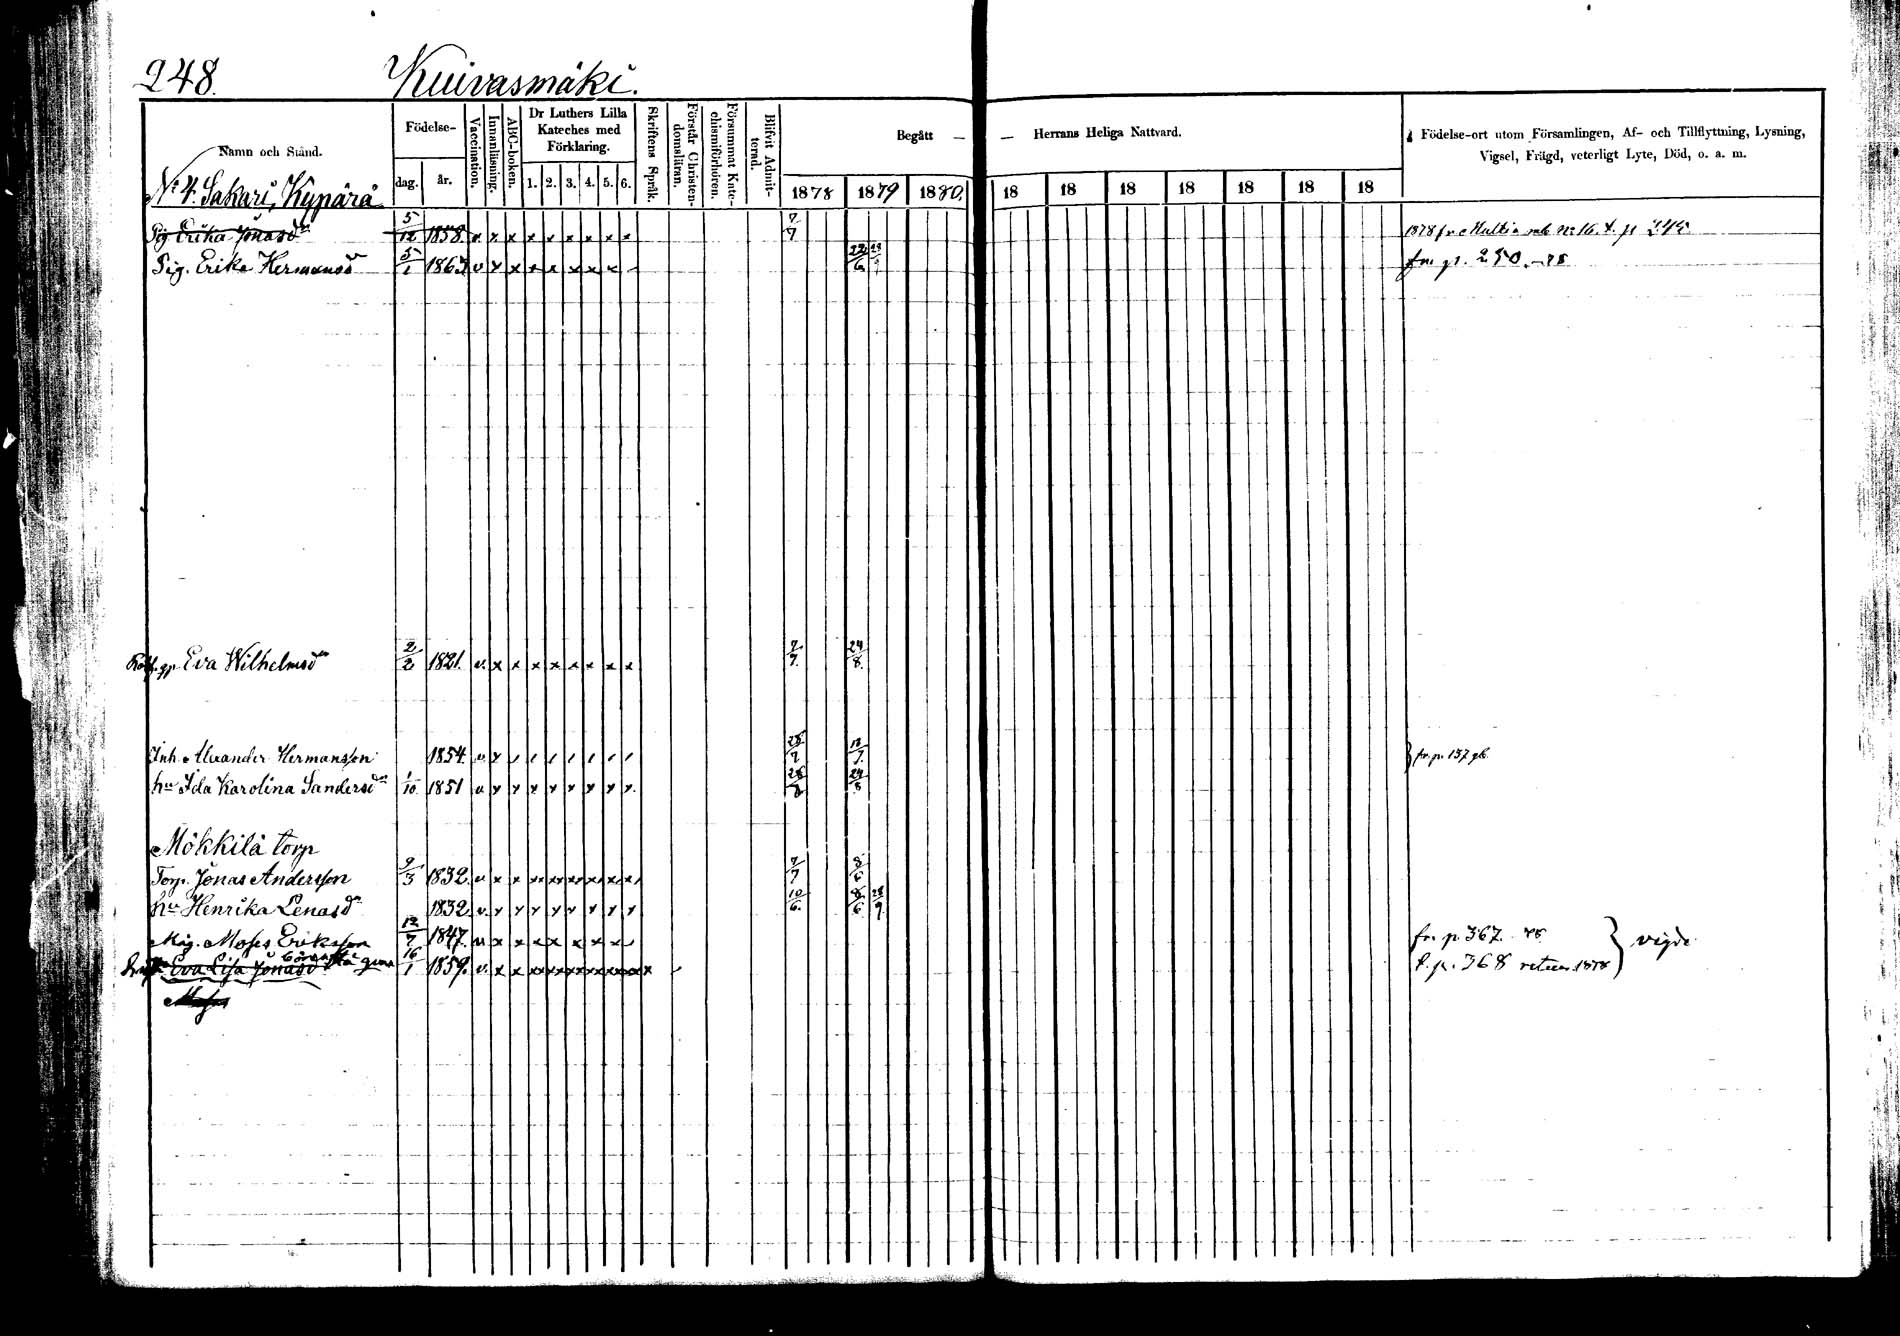 248.
Kuivasmäki.
Namn och Stånd.
Födelse-
dag. år.
Vaccination.
Innanläsning.
ABC-boken.
Dr Luthers Lilla
Kateches med
Förklaring.
1. 2. 3. 4. 5. 6.
Skriftens Språk.
Förstår Christen-
domsläran.
Försummat Kate-
chismiförhören.
Blifvit Admit-
terad.
Begått —
— Herrans Heliga Nattvard.
1878 1879 1880. 18 18 18 18 18 18 18
Födelse-ort utom Församlingen, Af- och Tillflyttning, Lysning,
Vigsel, Frägd, veterligt Lyte, Död, o. a. m.
No 4. Sakari, Kypärä
Pig Erika Jonasdr 5/12 1858. v. x x x x x x x x 7/7 1878 fr Multia No 16. t. p
Pig. Erika Hermansd 5/1 1863 v x x x x x x x 6 fr. p. 250. -78
Eva Wilhelmsdr 2/2 1821. v. x x x x x x x x 7/7. 24/8.
Inh. Alexander Hermansson 1854. v. x 28/7 fr. p. 137 gb.
hu Ida Karolina Sandersdr 1/10 1851 v x x x x x x x x 24/8
Mökkilä torp
Torp. Jonas Andersson 9/3 1832. v. x x x x x x x x 7/7 8/6
hu Henrika Lenasdr 1832. v. x x x x x x x x 10/6. 8/6 28/9.
Måg. Moses Eriksson 12/7 1847. v. x x x x x x x fr. p. 367. 78 } vigde
Eva Lisa Jonasd 16/1 1859. v. x x x x x x x x x t. p. 368 return. 1878
Moses